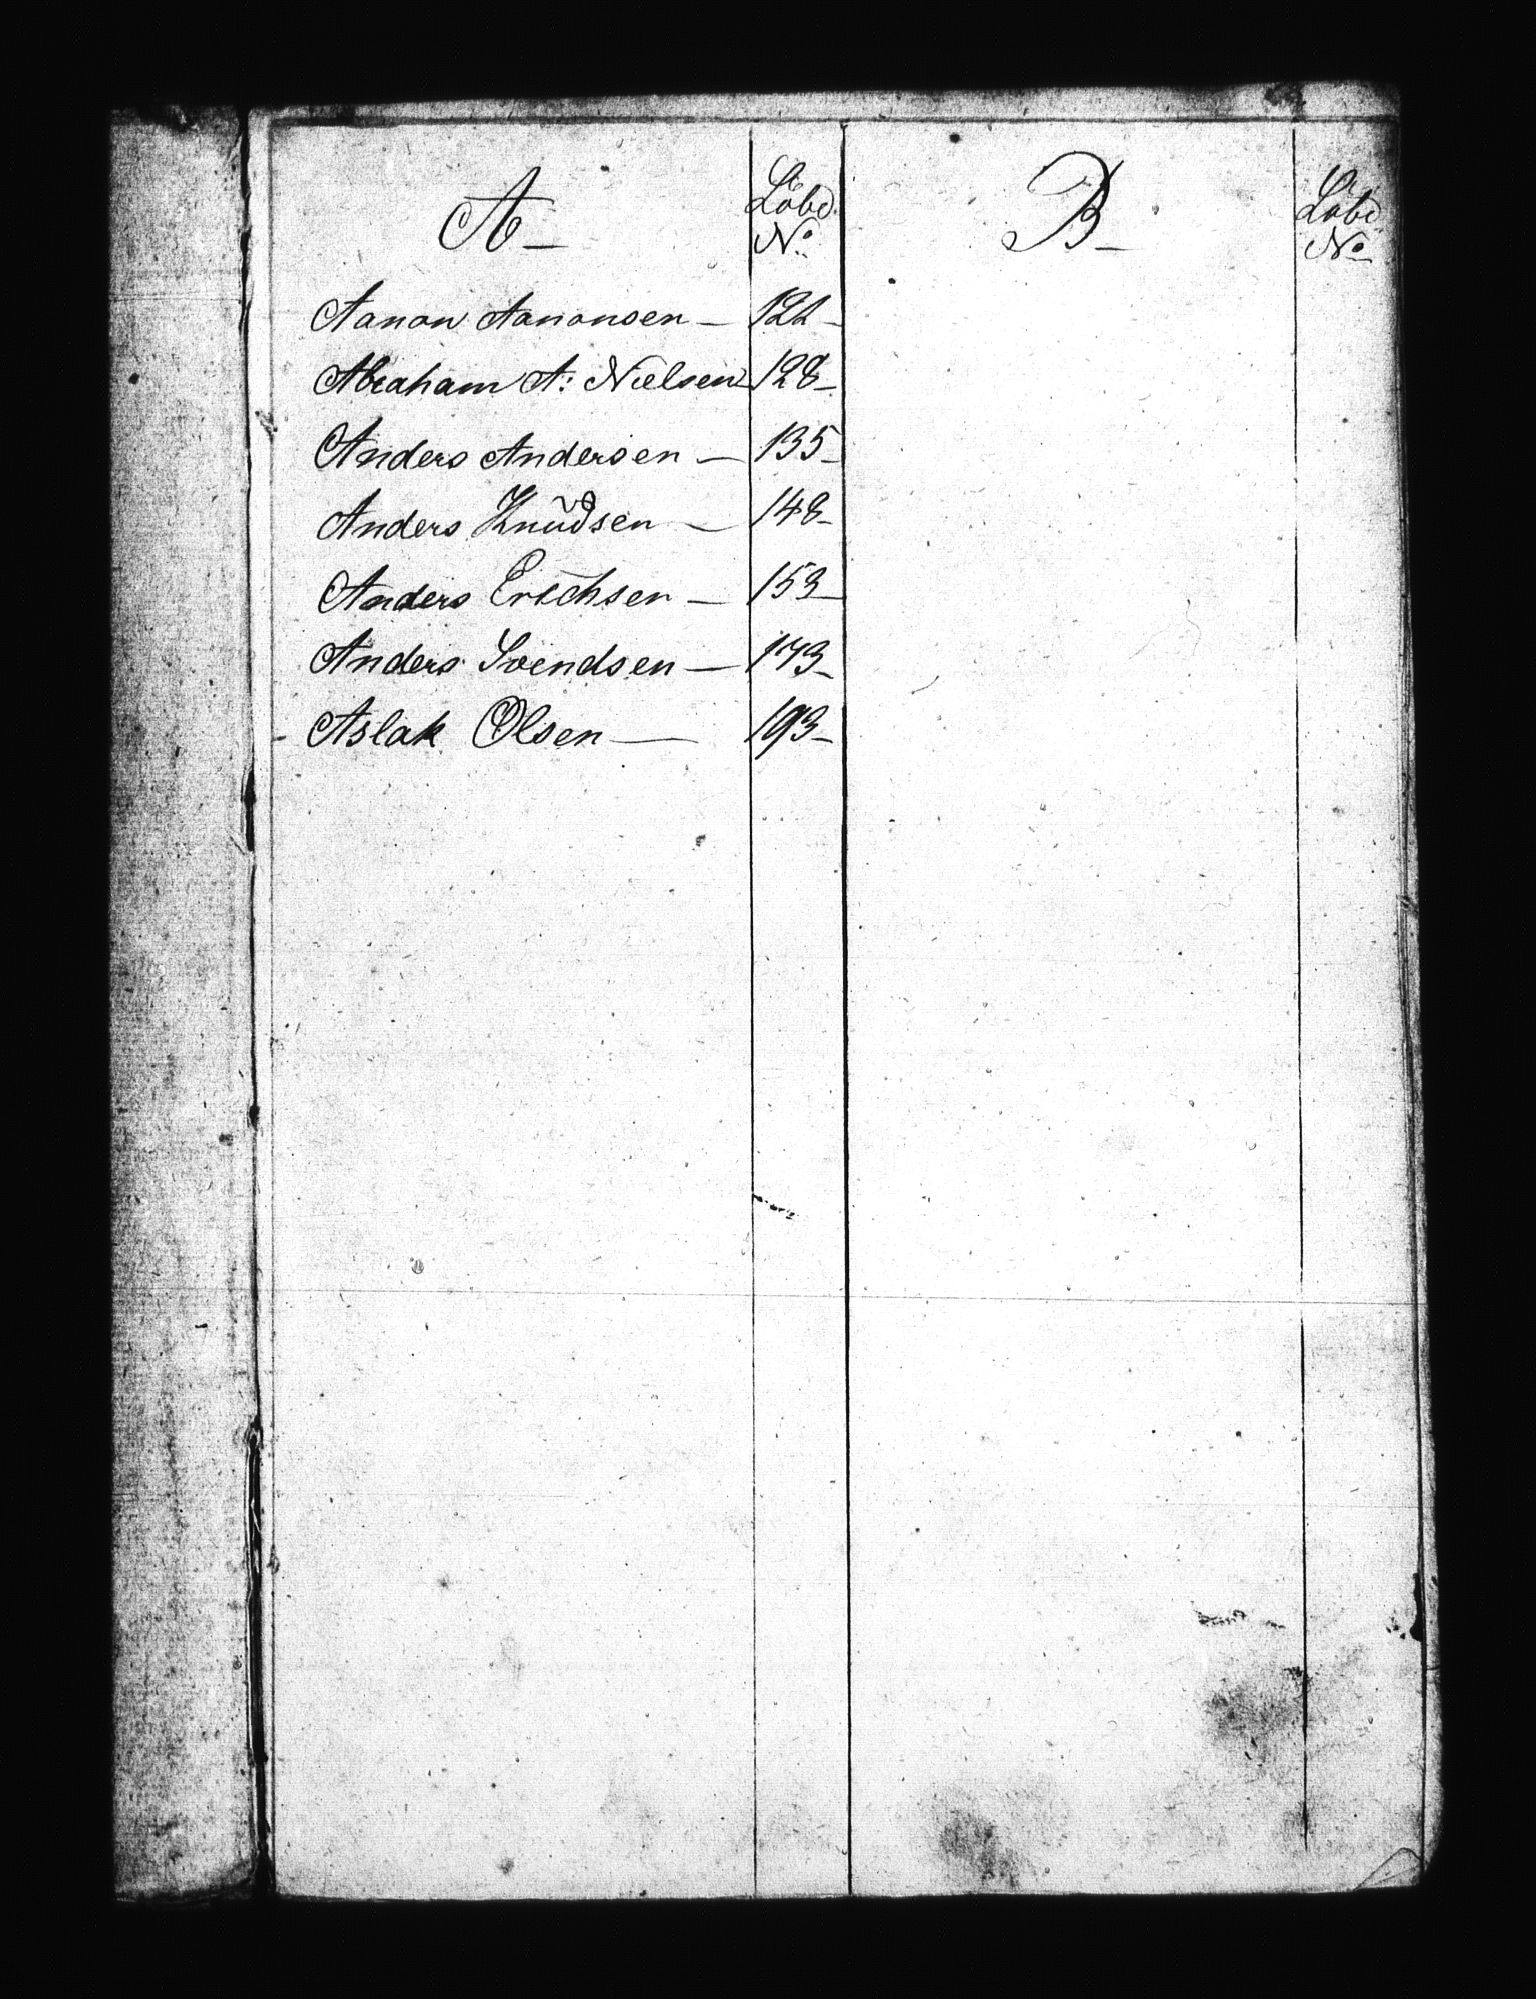 A
Löbd.
No.
Aanon Aanonsen —
Abraham A: Nielsen — 128 —
Anders Andersen — 135 —
Anders Knudsen — 148 —
Anders Erichsen — 153 —
Anders Svendsen — 173 —
Aslak Olsen — 193 —
B
Löbd
No.